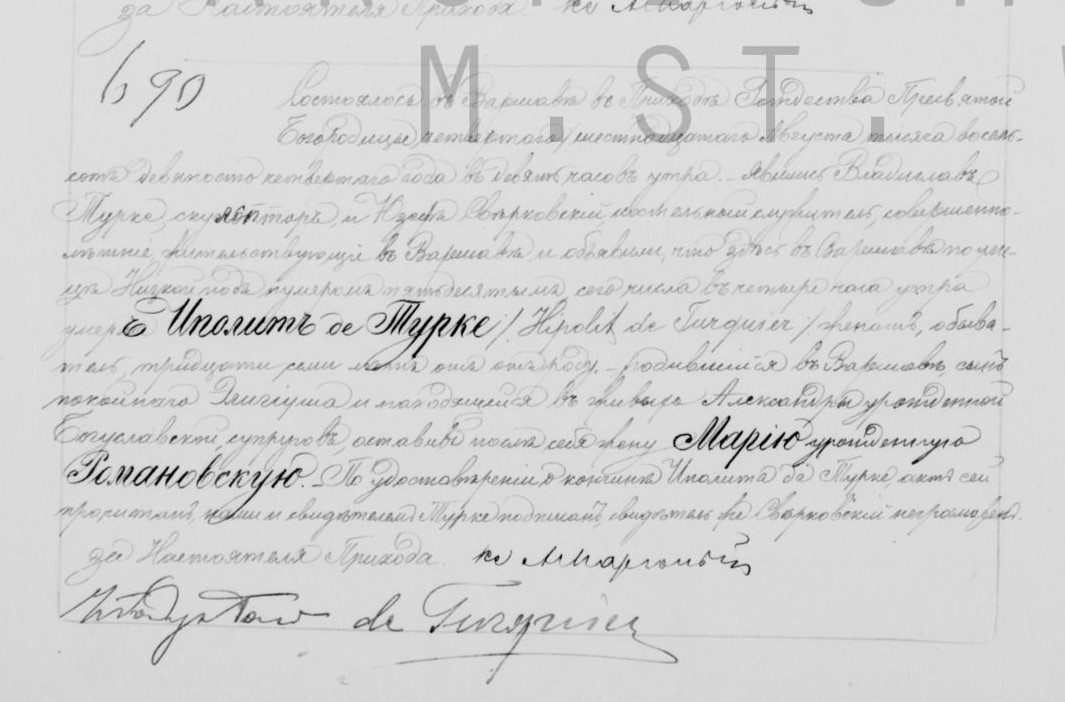 за Настоятеля Прихода. Кс
М. ST.
690
Состоялось въ Варшавѣ въ Приходѣ Рождества Пресвятой
Богородицы четвертаго/шестнадцатаго Августа тысяча восемь-
сотъ девяносто четвертаго года въ девять часовъ утра. – Явились Владиславъ
Турке, скульпторъ, и Юзефъ Сварковскій, костельный служитель, совершенно-
лѣтніе, жительствующіе въ Варшавѣ и объявили, что здѣсь въ Варшавѣ по ули-
цѣ Низкой подъ нумеромъ пятьдесятымъ сего числа въ четыре часа утра
умеръ Иполитъ де Турке /Hipolit de Turquier/ женатъ, обыва-
тель, тридцати семи лѣтъ отъ роду, – родившійся въ Варшавѣ, сынъ
покойнаго Элигіуша и находящейся въ живыхъ Александры урожденной
Богуславской, супруговъ, оставивъ послѣ себя жену Марію урожденную
Романовскую. – По удостовѣреніи о кончинѣ Иполита де Турке, актъ сей
прочитанъ, нами и свидѣтелемъ Турке подписанъ, свидѣтель же Сварковскій неграмотенъ.
за Настоятеля Прихода. Кс
Władysław de Turquier